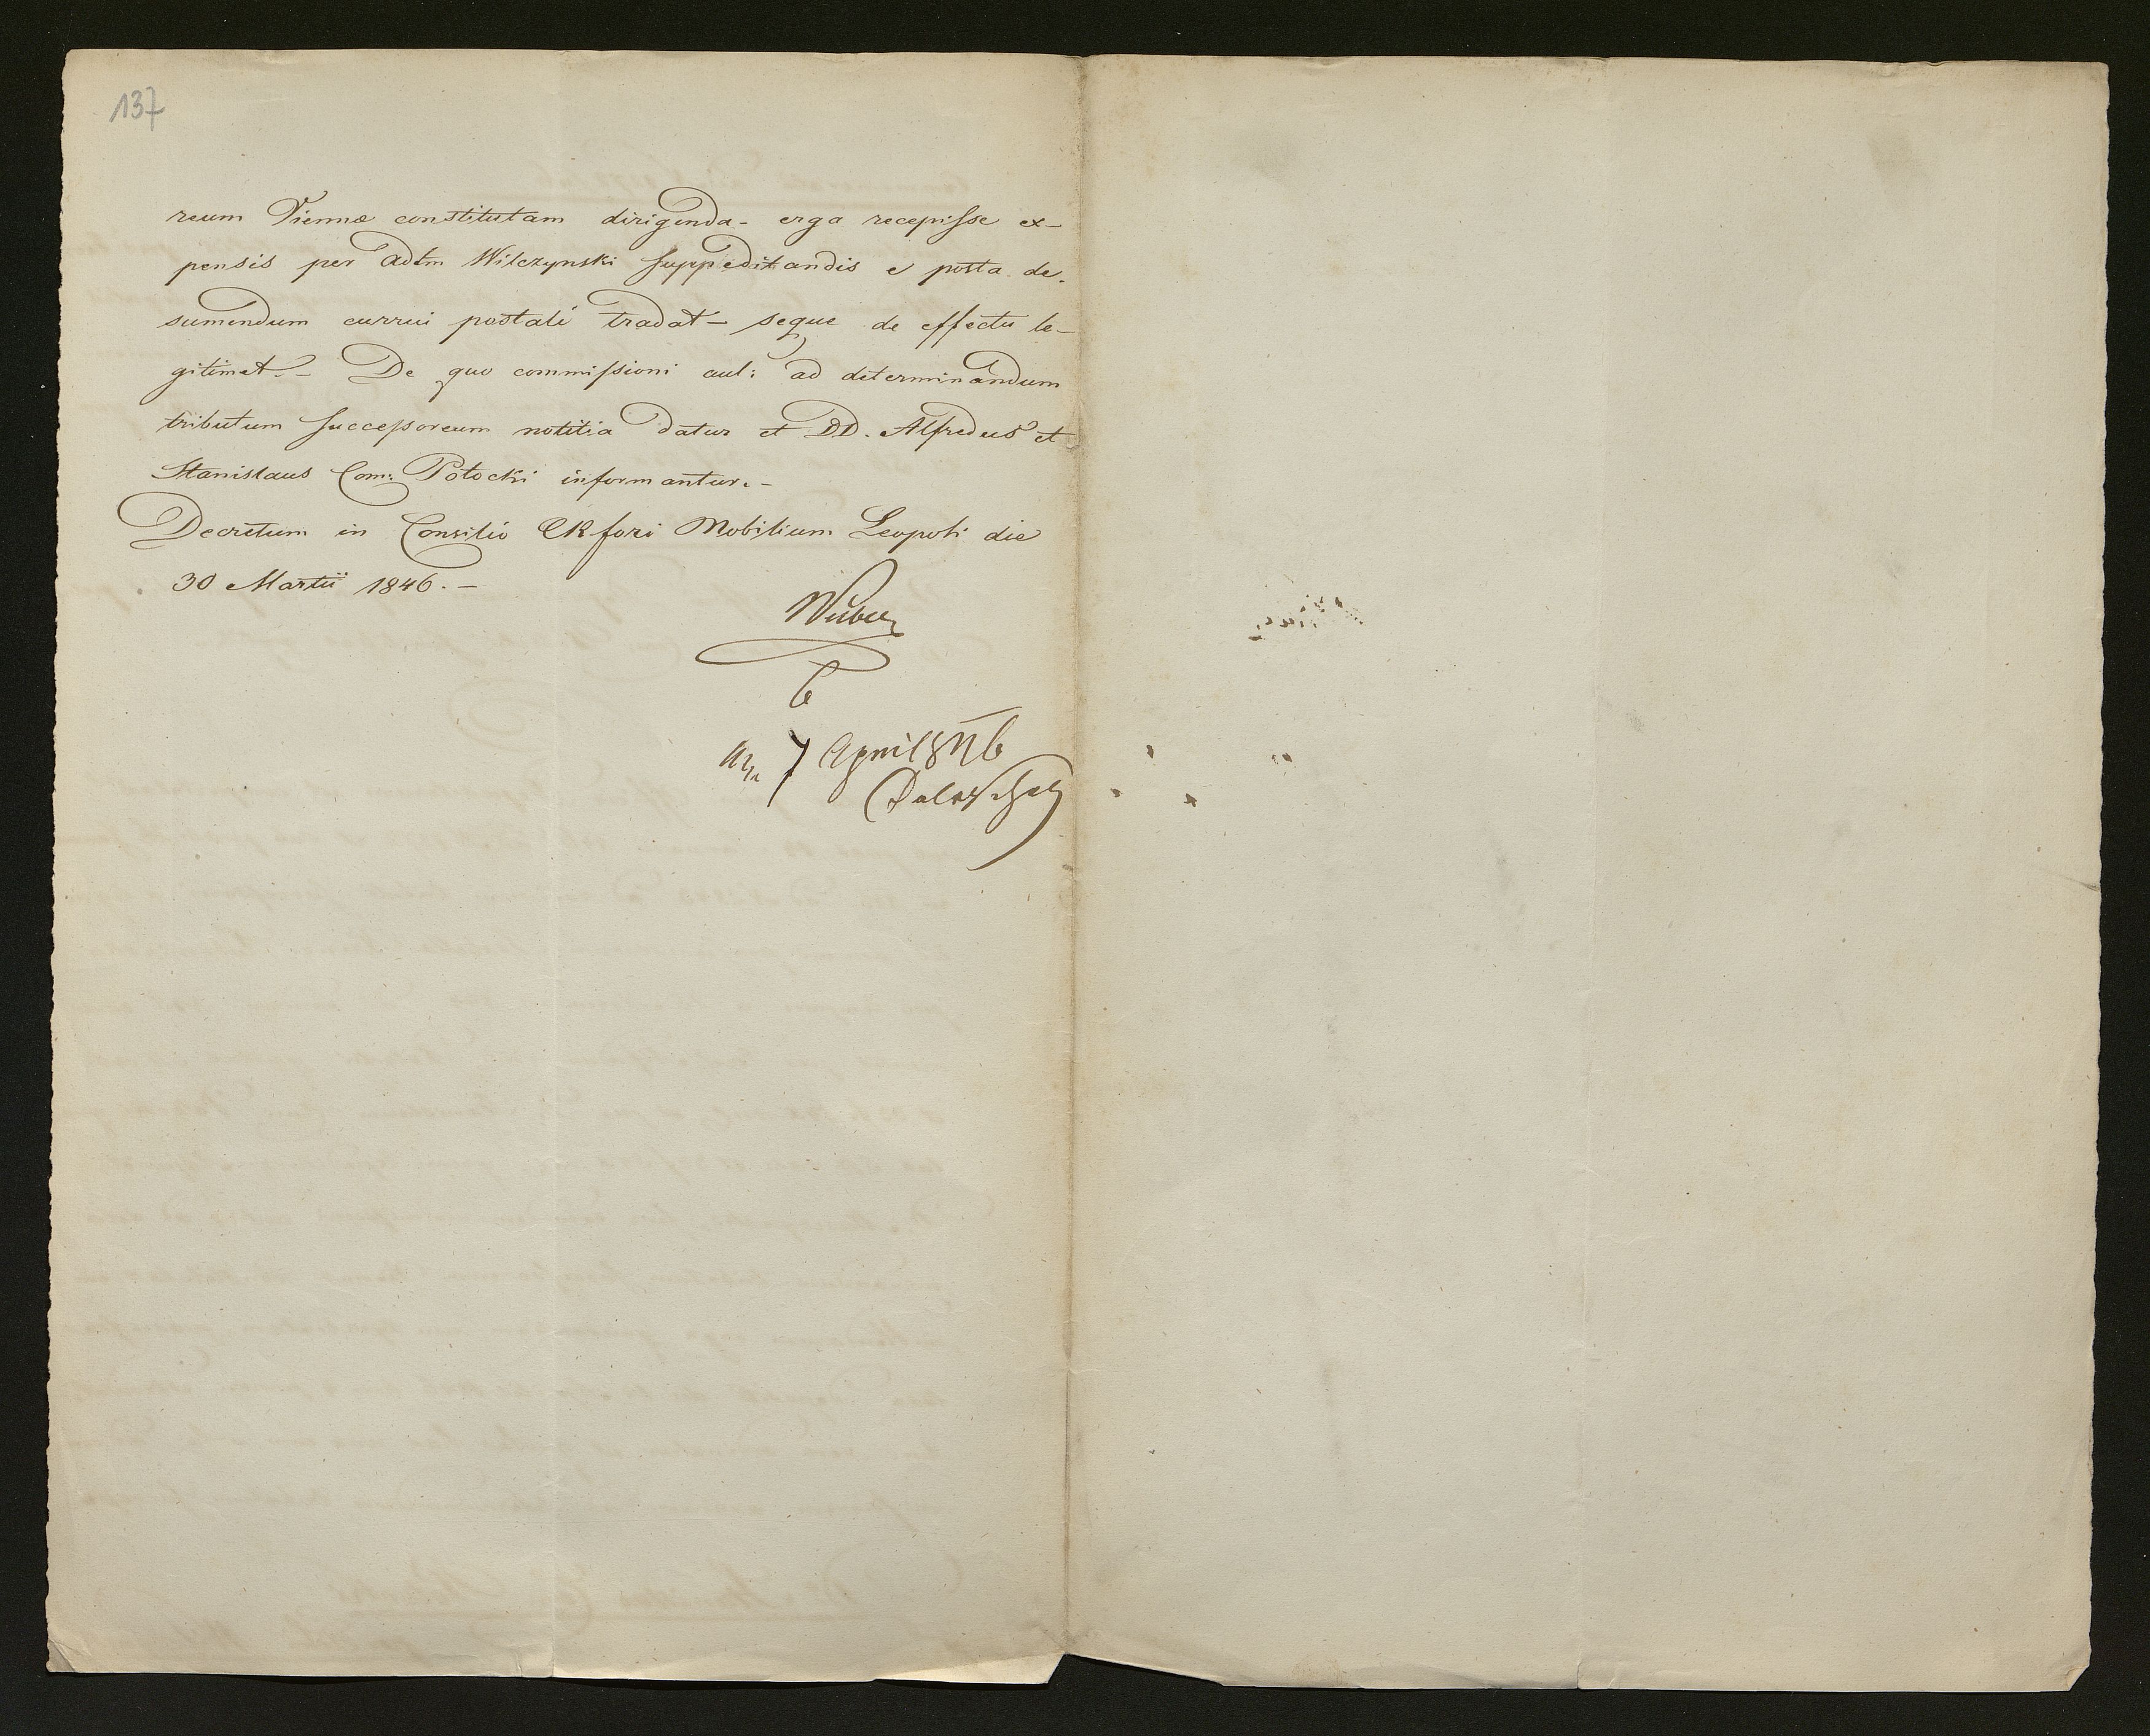 137
reum Viennæ constitutam dirigenda - erga recepisse ex-
pensis per adtm Wilczynski suppeditandis e posta de-
sumendum currui postali tradat - seque de effectu le-
gitimet. - De quo commissioni aul: ad determinandum
tributum successoreum notitia datur et DD. Alfredus et
Stanislaus Com: Potocki informantur. -
Decretum in Consilio CR fori Nobilium Leopoli die
30 Martii 1846. -
7 April 846